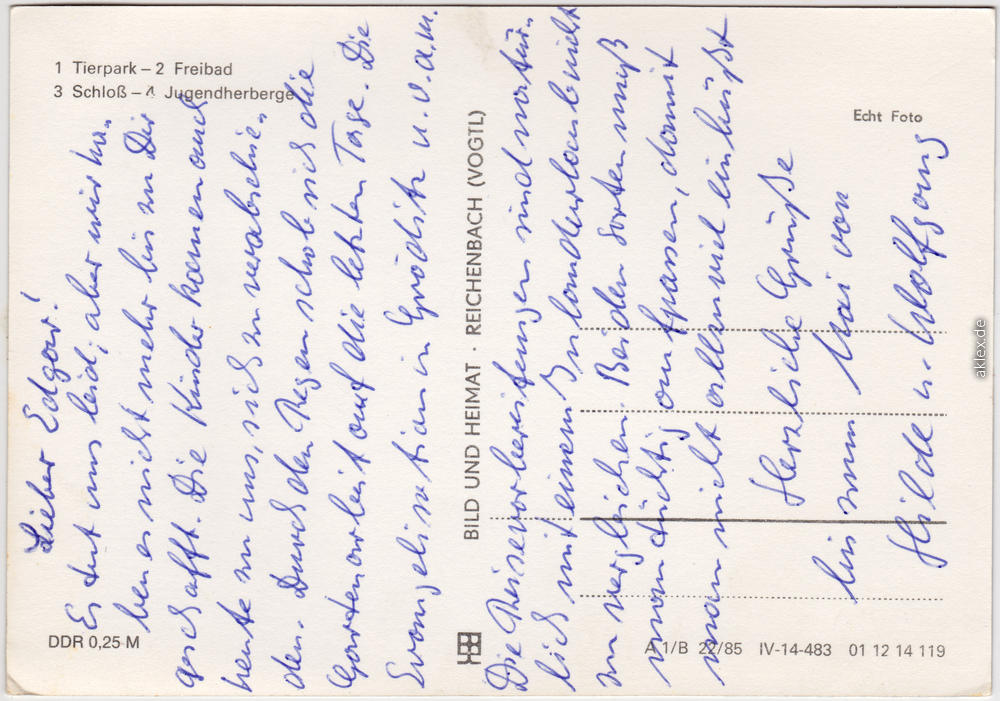 1 Tierpark – 2 Freibad
3 Schloß – 4 Jugendherberge
Lieber Edgar!
Es tut uns leid, aber wir ha-
ben es nicht mehr bis zu Dir
geschafft. Die Kinder kamen auch
heute zu uns, sich zu verabschie-
den. Durch den Regen schob sich die
Gartenarbeit auf die letzten Tage. Die
Evangelisation in Gröditz u.v.a.m.
BILD UND HEIMAT · REICHENBACH (VOGTL)
Die Reisevorbereitungen sind natür-
lich mit einem Inlandurlaub nicht
zu vergleichen. Bei den Sorten muß
man tüchtig aufpassen, damit
man nicht allzuviel einbüßt
Herzliche Grüße
bis zum Mai von
Hilde u. Wolfgang
Echt Foto
DDR 0,25 M
A 1/B 22/85 IV-14-483 01 12 14 119
aklex.de